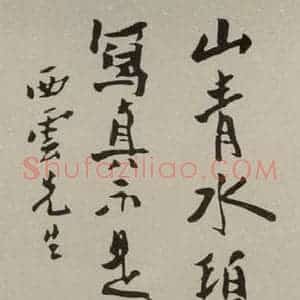 山青水碧
寫真不是
西雲先生
Shufaziliao.com